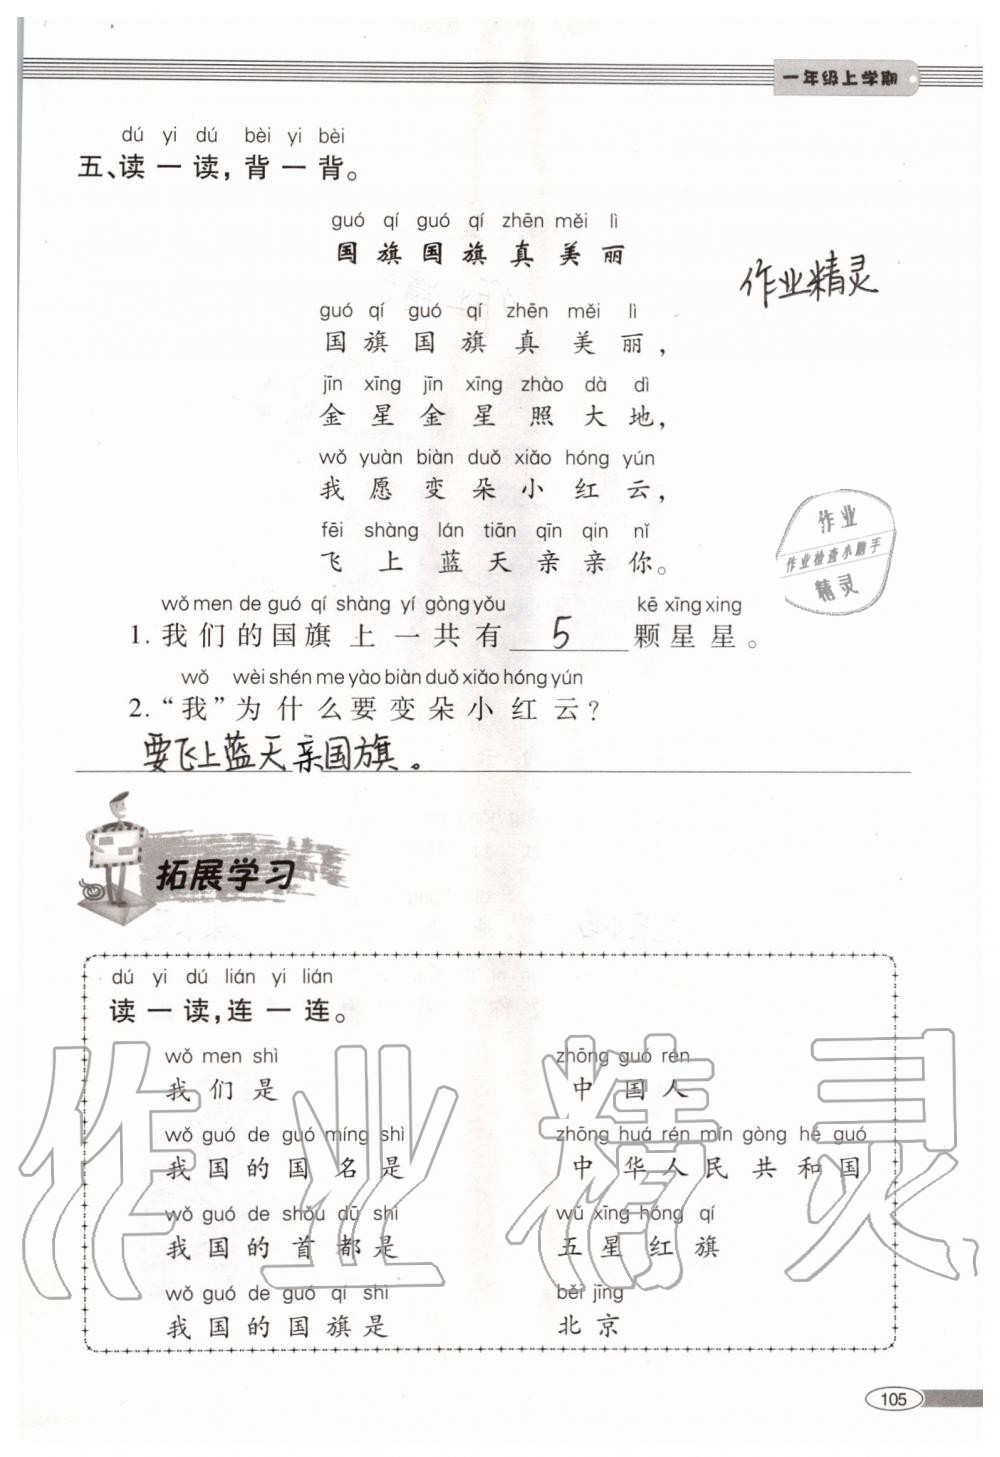 一年级上学期
dú yi dú bèi yi bèi
五、读一读，背一背。
guó qí guó qí zhēn měi lì
国旗国旗真美丽
作业精灵
guó qí guó qí zhēn měi lì
国旗国旗真美丽，
jīn xīng jīn xīng zhào dà dì
金星金星照大地，
wǒ yuàn biàn duǒ xiǎo hóng yún
我愿变朵小红云，
fēi shàng lán tiān qīn qin nǐ
飞上蓝天亲亲你。
作业
作业检查小助手
精灵
wǒ men de guó qí shàng yí gòng yǒu kē xīng xing
1. 我们的国旗上一共有 5 颗星星。
wǒ wèi shén me yào biàn duǒ xiǎo hóng yún
2. “我”为什么要变朵小红云?
要飞上蓝天亲国旗。
拓展学习
dú yi dú lián yi lián
读一读，连一连。
wǒ men shì zhōng guó rén
我们是 中国人
wǒ guó de guó míng shì zhōng huá rén mín gòng hé guó
我国的国名是 中华人民共和国
wǒ guó de shǒu dū shì wǔ xīng hóng qí
我国的首都是 五星红旗
wǒ guó de guó qí shì běi jīng
我国的国旗是 北京
作业精灵
105